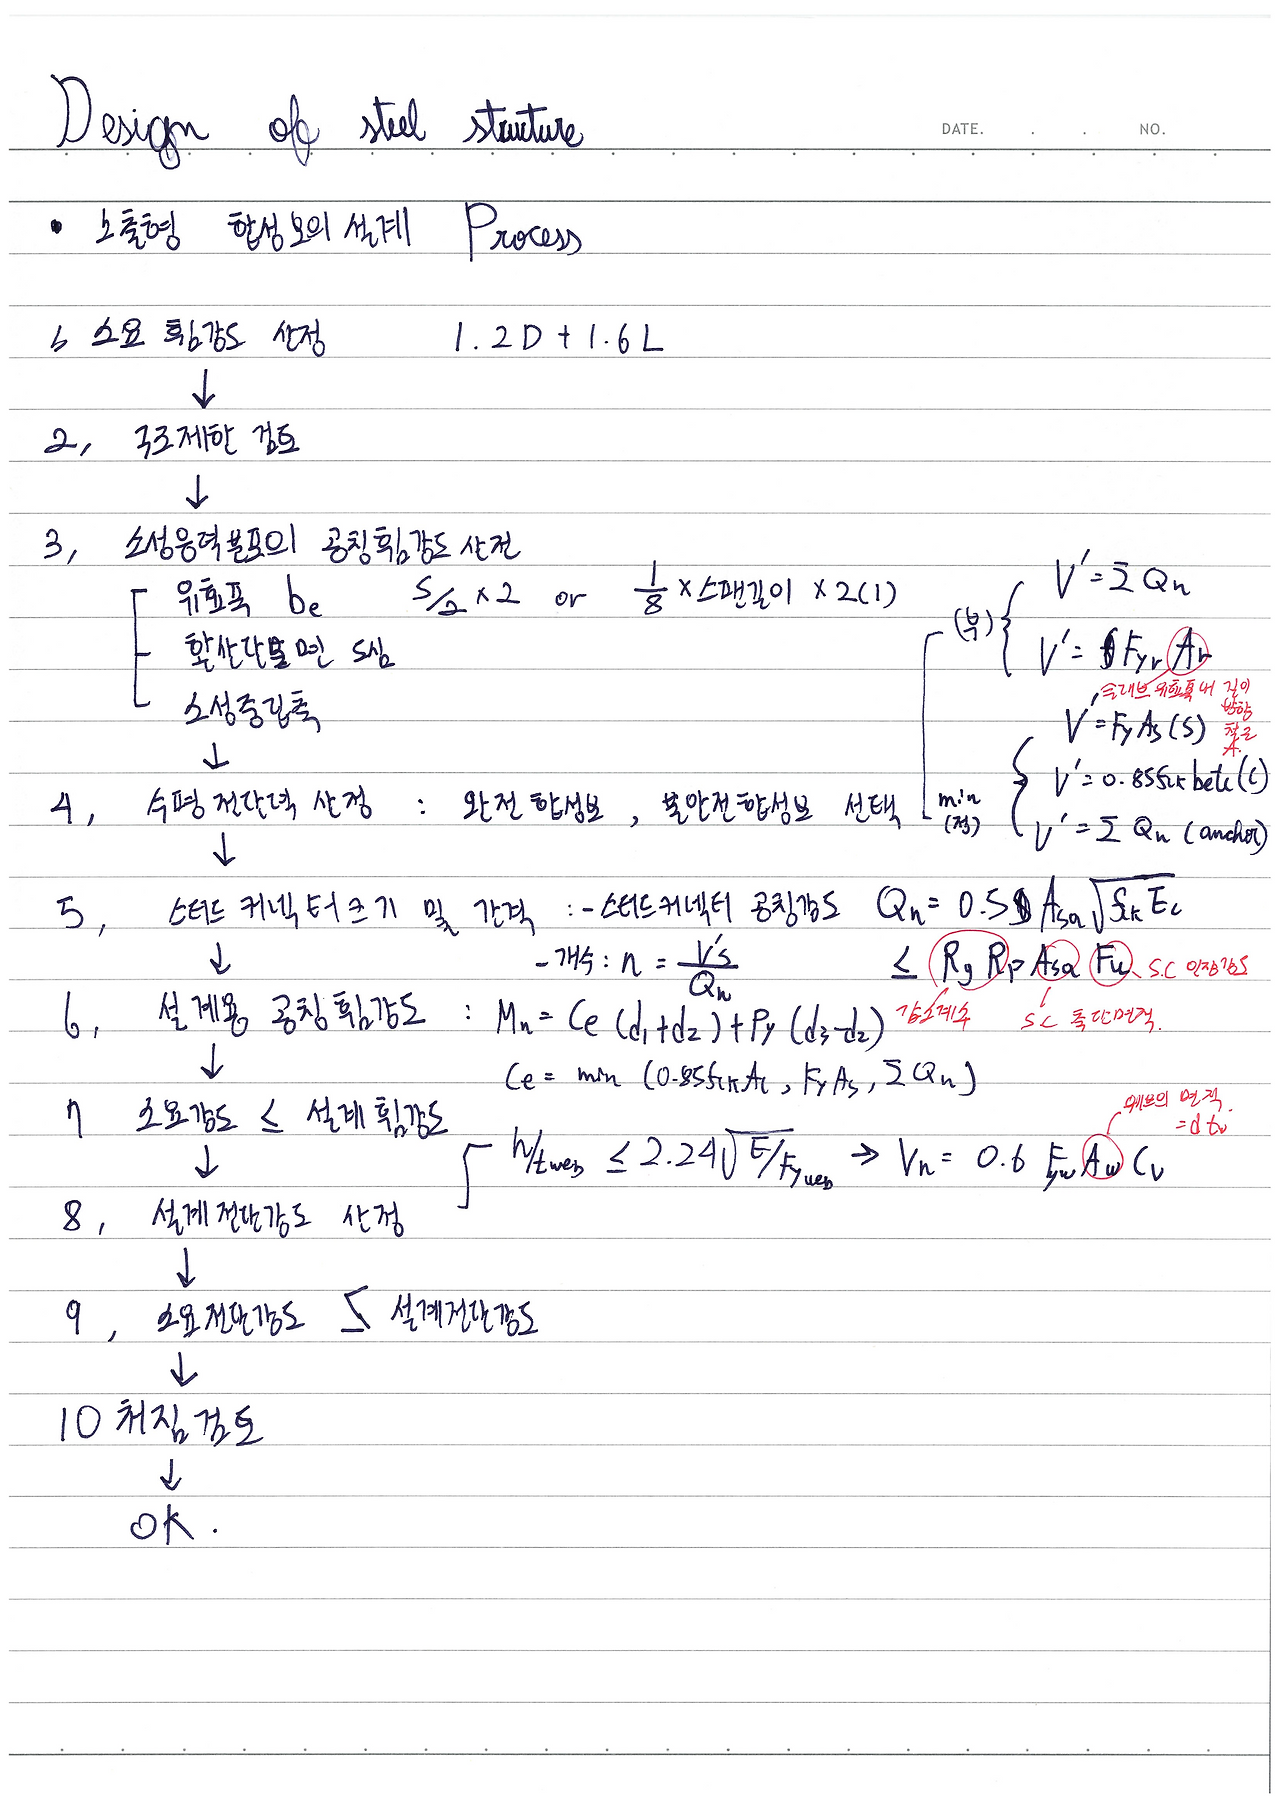 Design of steel structure
DATE. . . NO.
• 노출형 합성보의 설계 Process
1, 소요 휨강도 산정 1.2D + 1.6L
↓
2, 구조제한 검토
↓
3, 소성응력분포의 공칭휨강도 산전
유효폭 be S/2 × 2 or 1/8 × 스팬길이 × 2(1)
환산단면 도심
소성중립축
↓
4, 수평전단력 산정 : 완전합성보, 불안전합성보 선택
(부) V' = Σ Qn
V' = Fyr Ar
슬래브 유효폭내 길이
방향
철근
A.
min
(정)
V' = Fy As (S)
V' = 0.85 fck be tc (C)
V' = Σ Qn (anchor)
↓
5, 스터드 커넥터크기 및 간격 : - 스터드커넥터 공칭강도 Qn = 0.5 Asa √fck Ec
≤ Rg Rp Asa Fu
S.C 인장강도
감소계수
S C 축단면적.
- 개수 : n = V's / Qn
↓
6, 설계용 공칭휨강도 : Mn = Ce (d1+d2) + Py (d3-d2)
Ce = min (0.85fck Ac, Fy As, Σ Qn)
↓
7 소요강도 ≤ 설계휨강도
↓
8, 설계전단강도 산정
h/tweb ≤ 2.24√E/Fyweb → Vn = 0.6 Fyw Aw Cv
웨브의 면적.
= d tw
↓
9, 소요전단강도 ≤ 설계전단강도
↓
10 처짐검토
↓
OK.